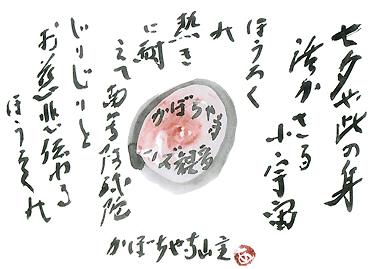 七夕や此の身
活かさる小宇宙
ほうろく
み
熱き
に耐
えて南無阿弥陀
じりじりと
お慈悲伝わる
ほうろくみ
かぼちゃ寺
観音
かぼちゃ寺山主